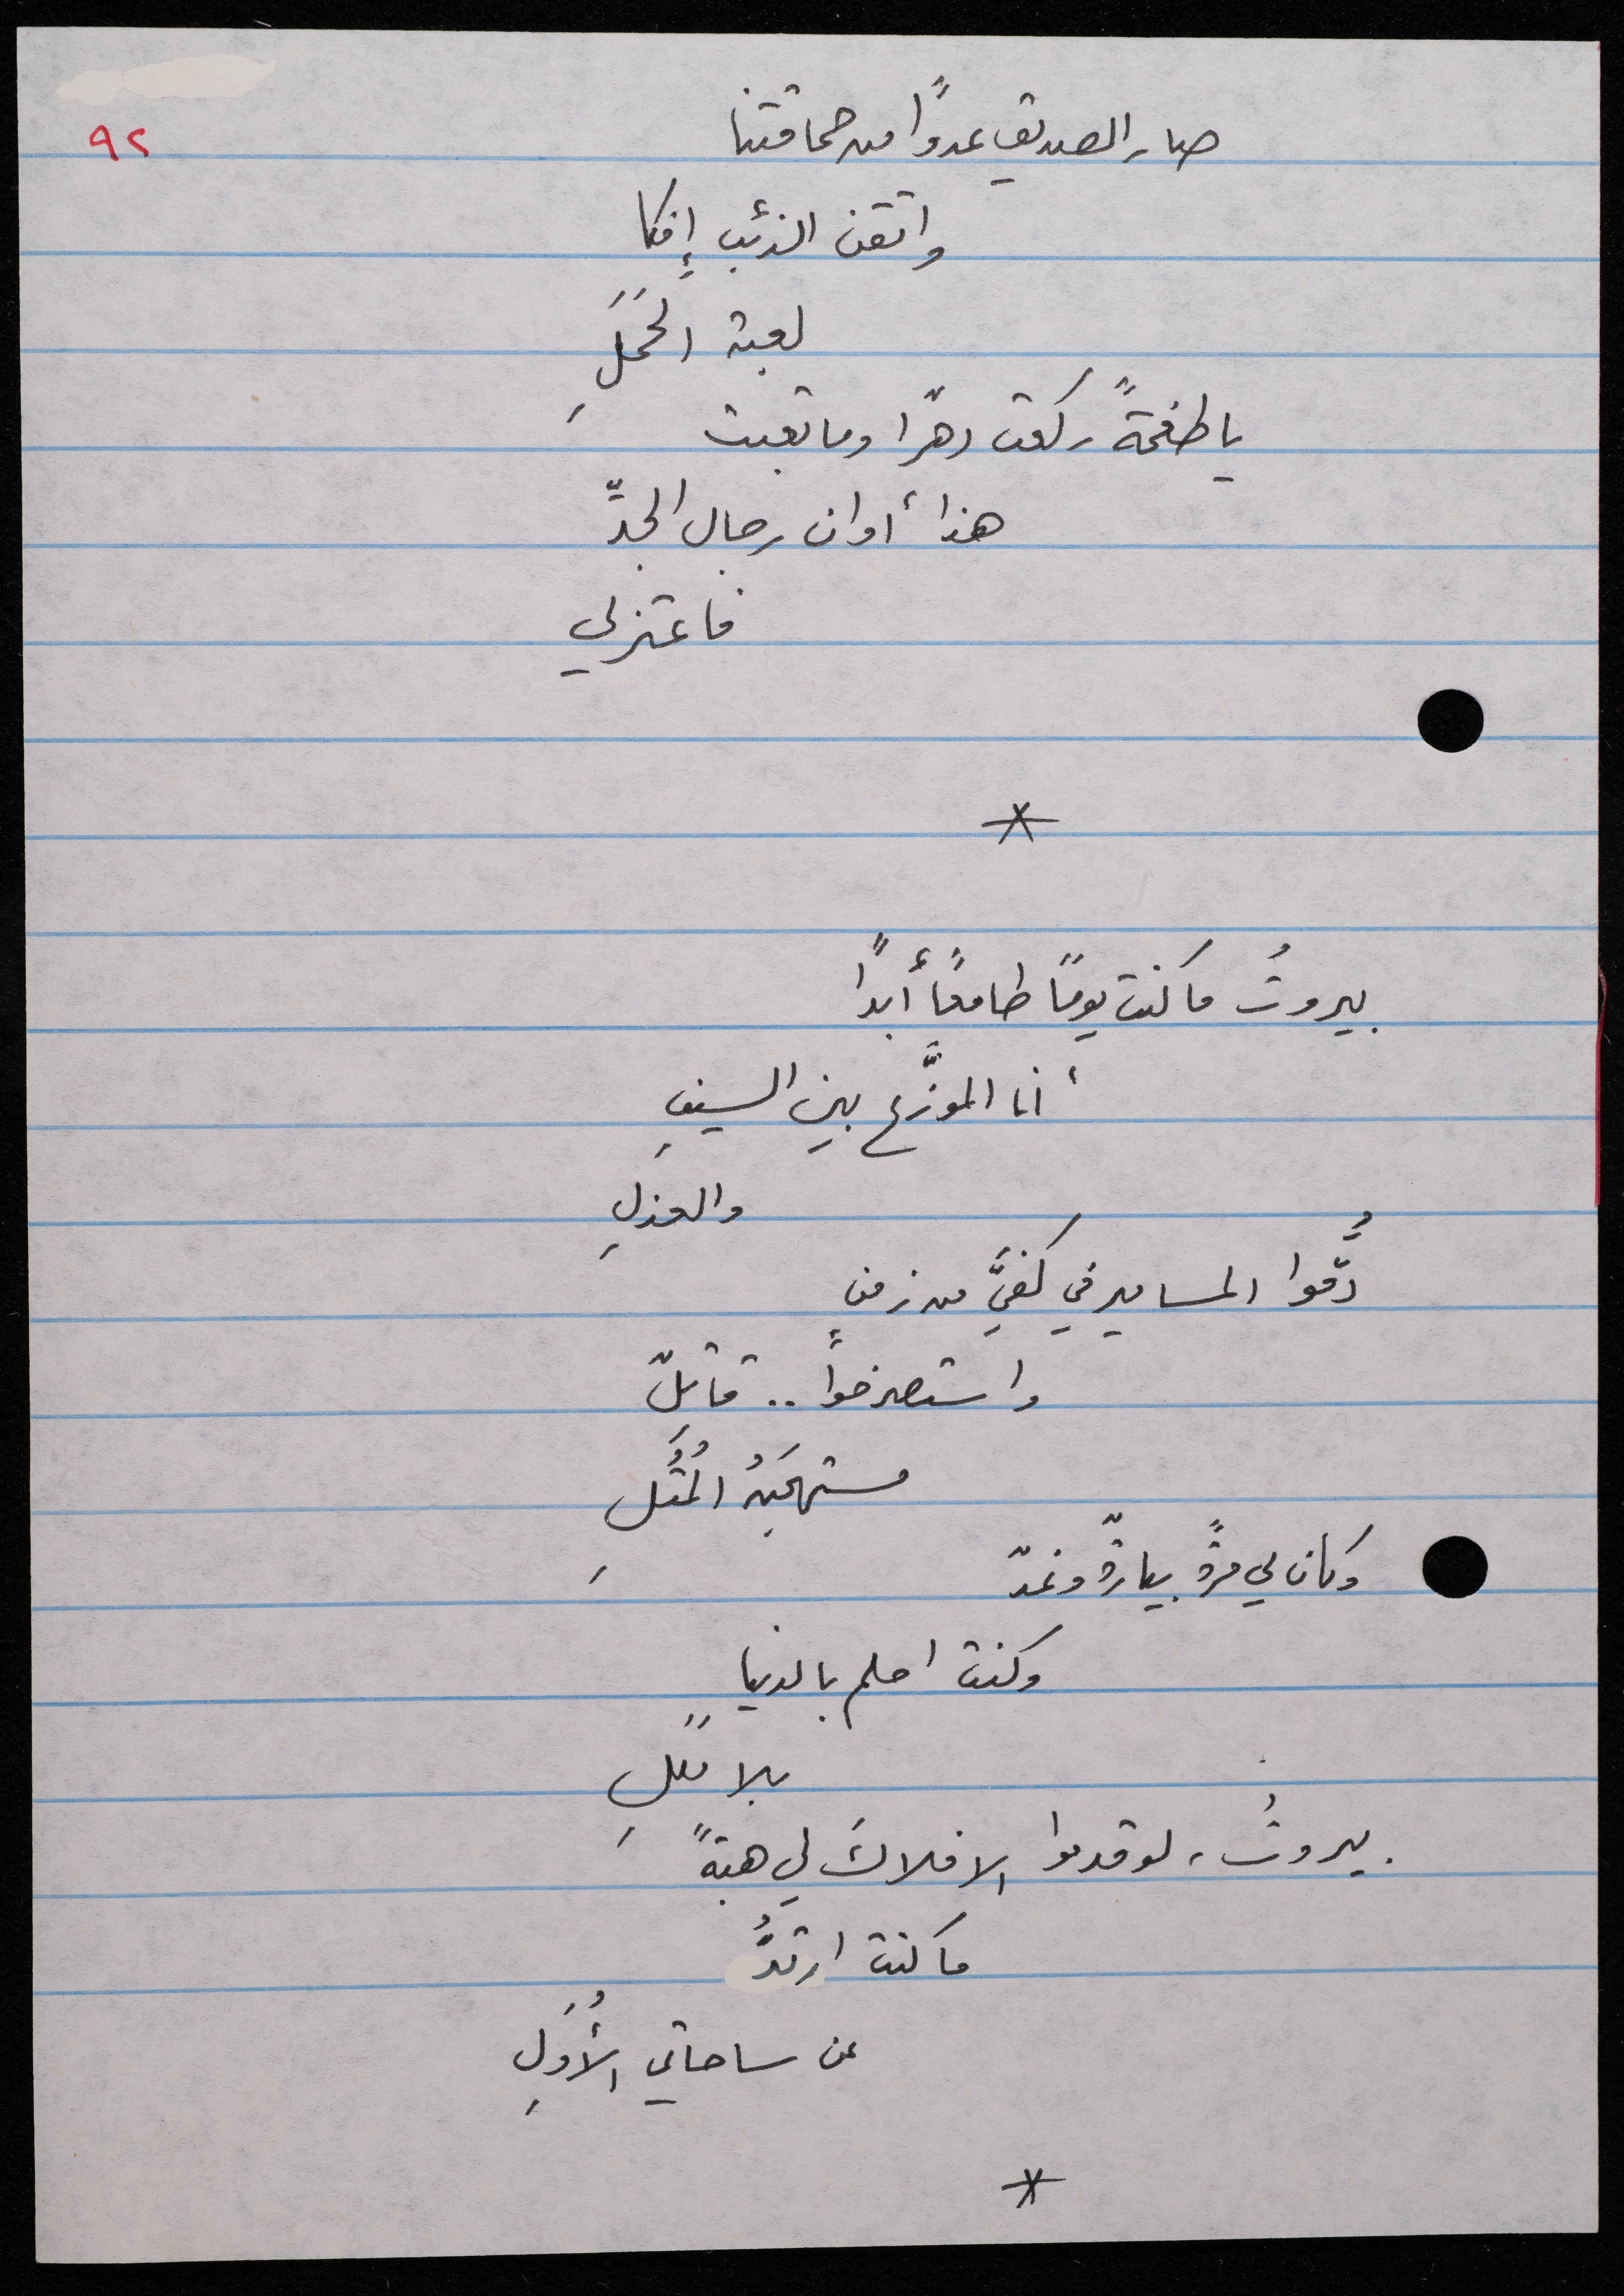 ٩٢
صار الصديق عدوًا من حماقتنا
واتقن الذئب إفكا
لعبة الحَمَلِ
يا طغمةً ركعت دهرًا وما تعبت
هذا أوان رجال الجدّ
فاعتزلي
*
بيروتُ ما كنت يومًا طامعًا أبدًا
أنا الموزَّع بين السيفِ
والعذلِ
دُقّوا المسامير في كفيَّ من زمنٍ
واستصرخوا .. قاتلٌ
مستهجَنُ المُثُلِ
وكان لي مرةً بيارةٌ وغدٌ
وكنت احلم بالدنيا
بلا مللِ
بيروتُ، لو قدموا الافلاكَ لي هبةً
ما كنت ارتدُّ
عن ساحاتي الأُوَلِ
*